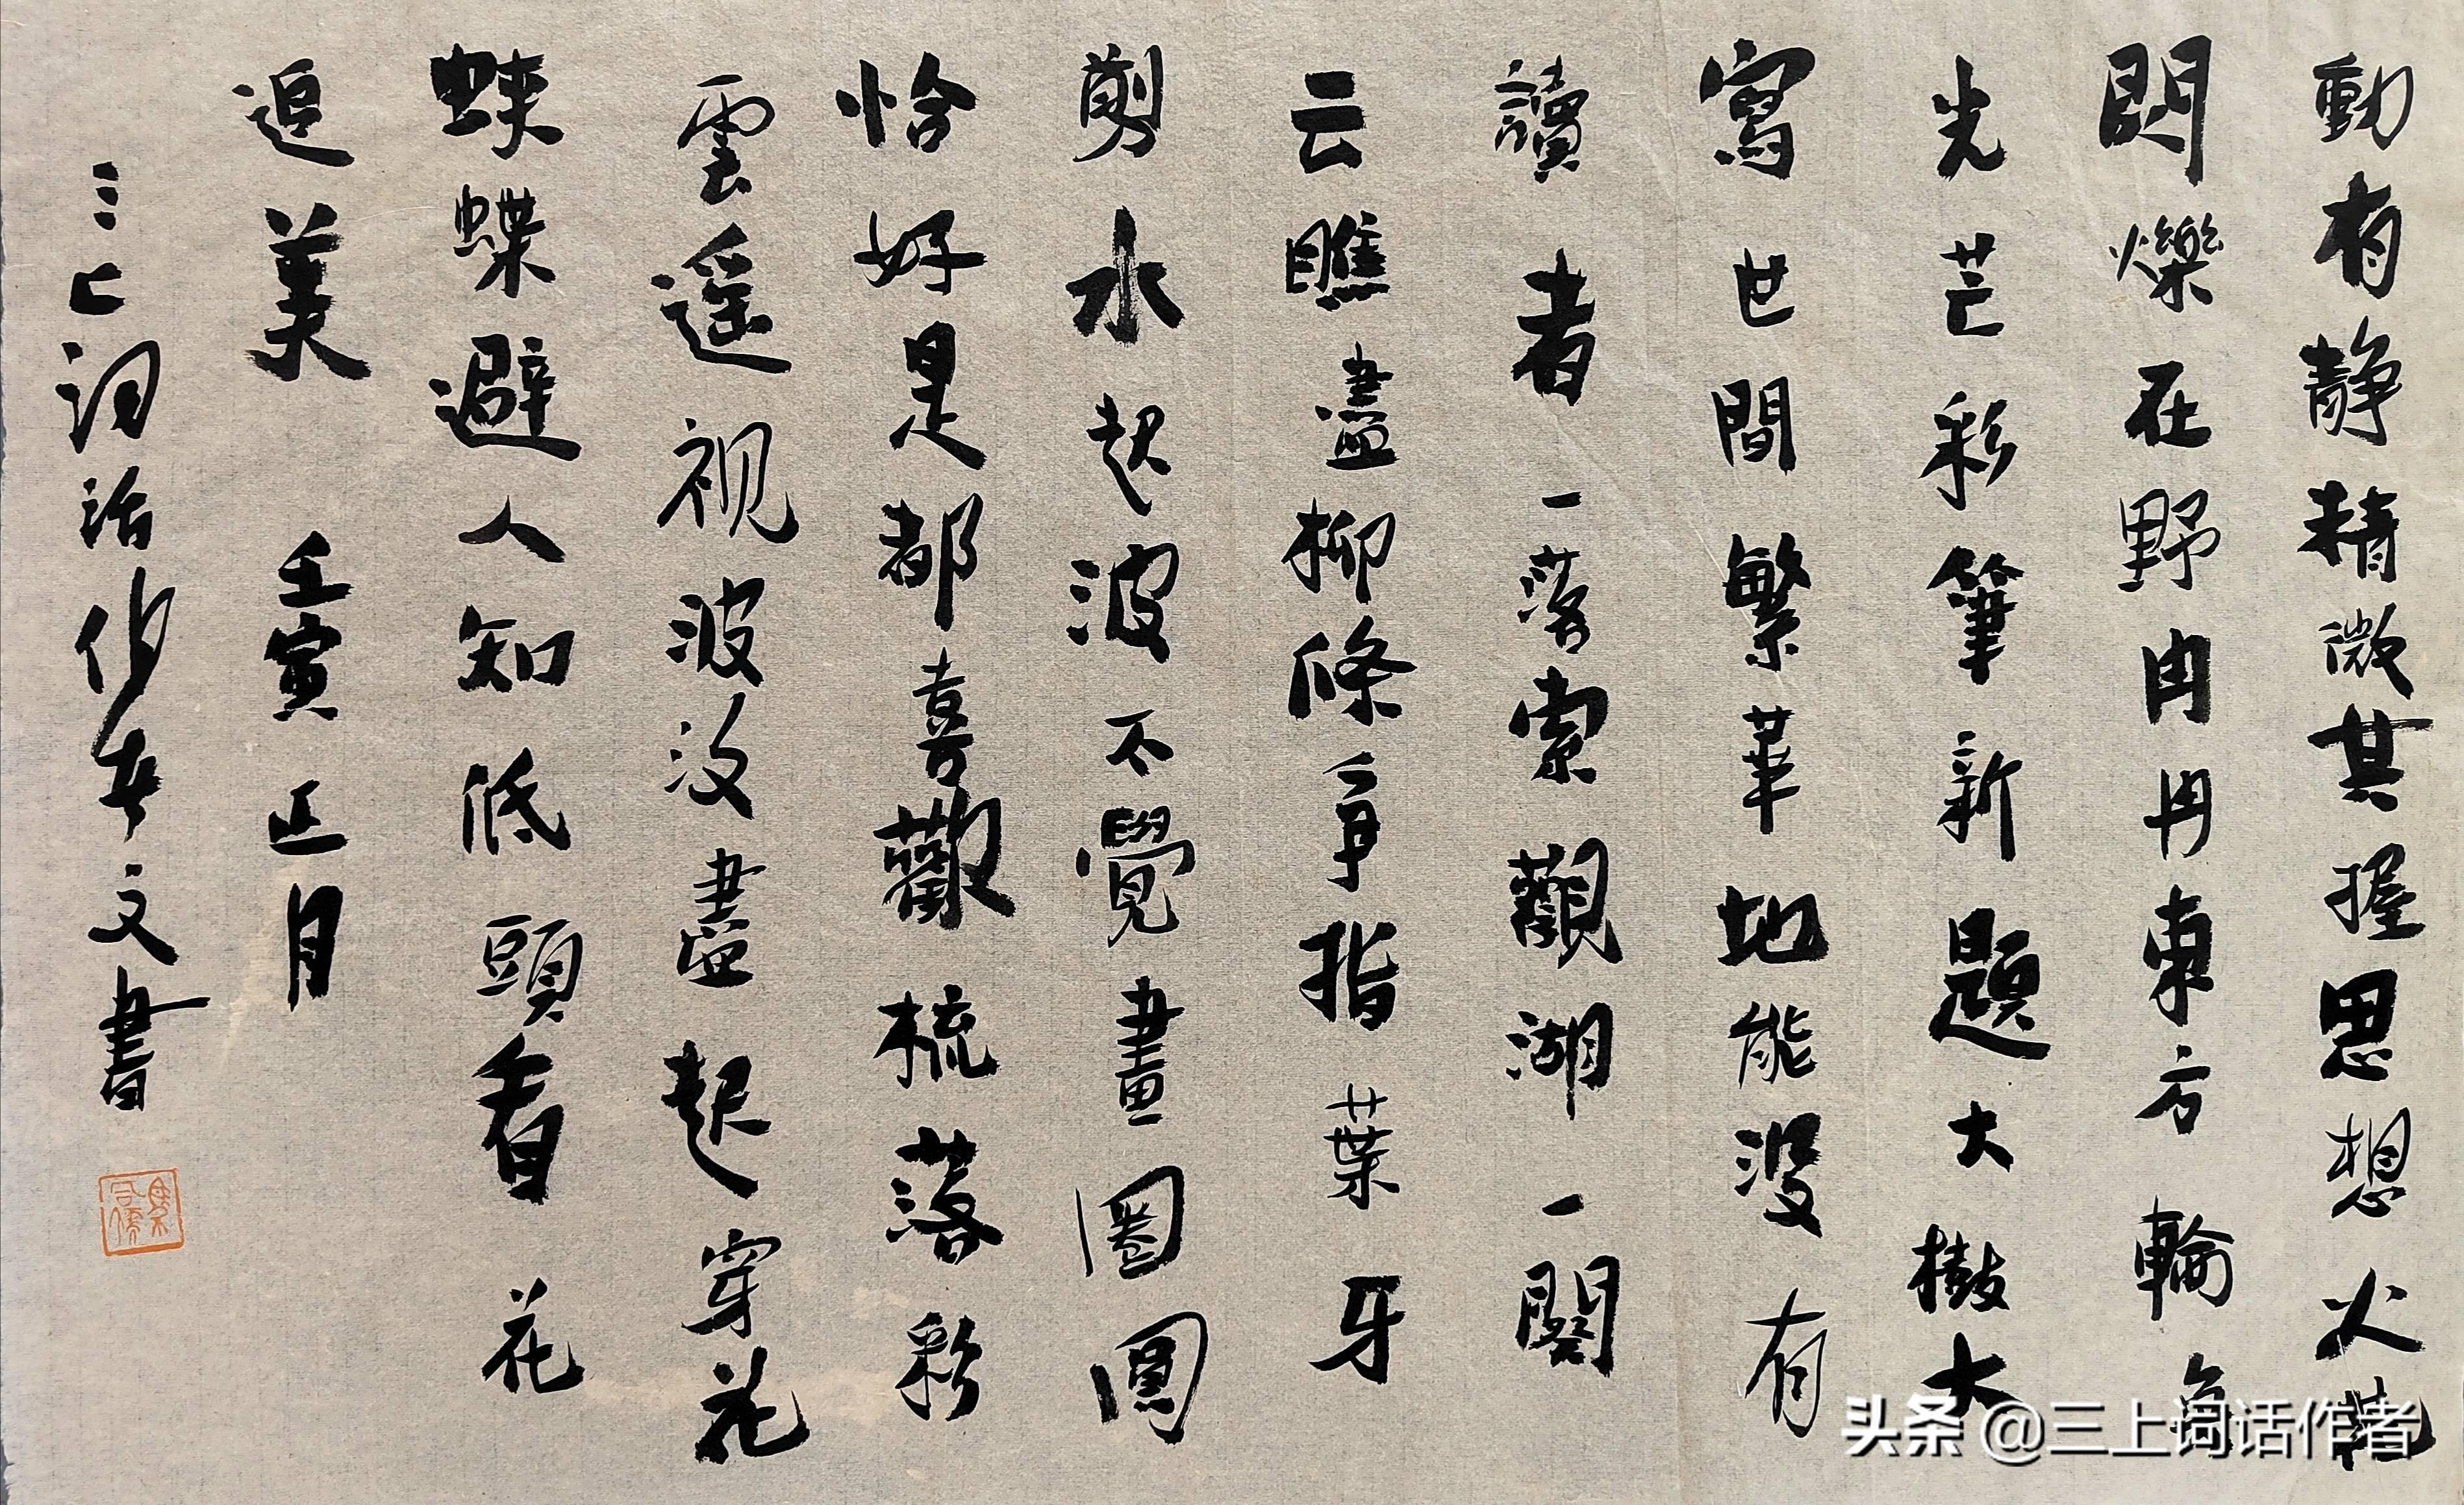 動有静精微其握思想火花
閃爍在野冉冉東方輪
光芒彩筆新題大樹大
寫世間繁華地能没有
讀者一落索觀湖一闋
云瞧盡柳條爭指葉牙
剪水起波不覺畫圈圓
恰好是都喜觀梳落彩
雲遥视波没盡起穿花
蛱蝶避人知低頭看花
追美 壬寅正月
三上词话作者文書
头条 @三上词话作者